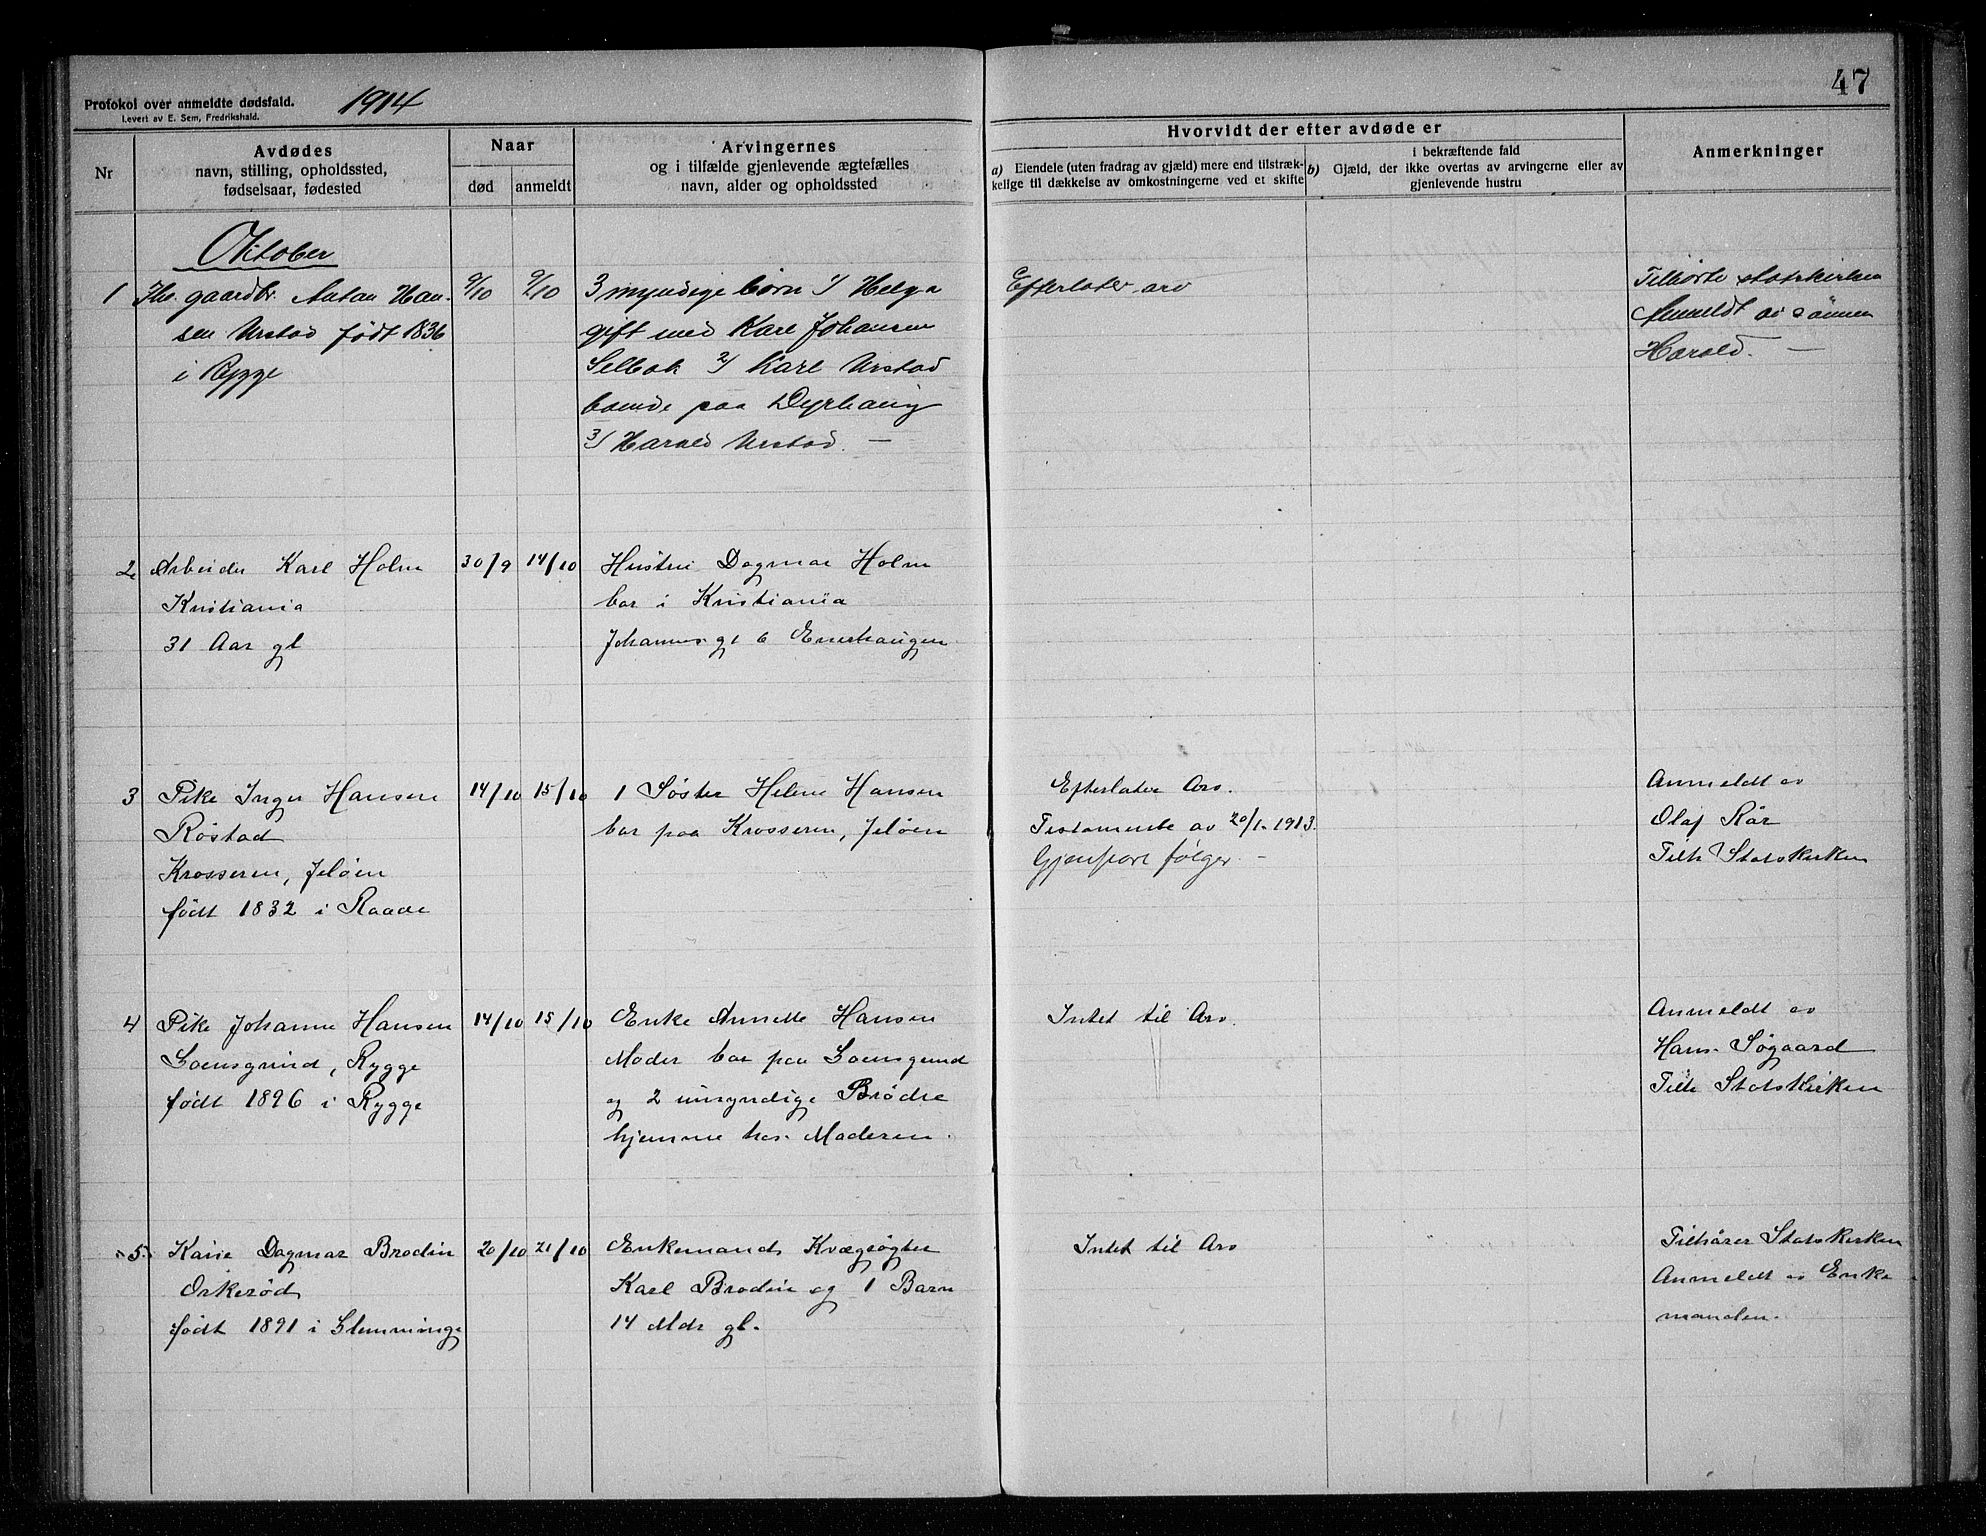 Protokol over anmeldte dødsfald.
Levert av E. Sem, Fredrikshald.
1914
47
Nr
Avdødes
navn, stilling, opholdssted,
fødselsaar, fødested
Naar
død
anmeldt
Arvingernes
og i tilfælde gjenlevende ægtefælles
navn, alder og opholdssted
Hvorvidt der efter avdøde er
a) Eiendele (uten fradrag av gjæld) mere end tilstræk-
kelige til dækkelse av omkostningerne ved et skifte
i bekræftende fald
b) Gjæld, der ikke overtas av arvingerne eller av
gjenlevende hustru
Anmerkninger
Oktober
1
gaardbr. Anton Han-
sen Urstad født 1836
i Rygge
9/10
9/10
3 myndige børn 1/ Helga
gift med Karl Johansen
Selbak 2/ Karl Urstad
boende paa Dyrhaug
3/ Harald Urstad. —
Efterlater arv
Tilhørte statskirken
Anmeldt av sønnen
Harald. —
2
Arbeider Karl Holm
Kristiania
31 Aar gl
30/9
14/10
Hustru Dagmar Holm
bor i Kristiania
Johannes gt 6 Enerhaugen
3
Pike Inger Hansen
Røstad
Krosseren, Jeløen
født 1832 i Raade
14/10
15/10
1 Søster Helene Hansen
bor paa Krosseren, Jeløen
Efterlater Arv.
Testamente av 20/1. 1913.
Gjenpart følger. —
Anmeldt av
Olaf Rør
Tilh Statskirken
4
Pike Johanne Hansen
Loensgrind, Rygge
født 1896 i Rygge
14/10
15/10
Enke Annette Hansen
Moder bor paa Loensgrind
og 2 umyndige Brødre
hjemme hos Moderen.
Intet til Arv.
Anmeldt av
Hans Søgaard
Tilh Statskirken
5
Karie Dagmar Brodin
Orkerød
født 1891 i Glemminge
20/10
21/10
Enkemand Kvægrøgter
Karl Brodin og 1 Barn
14 Mdr gl.
Intet til Arv
Tilhører Statskirken
Anmeldt av Enke
manden.